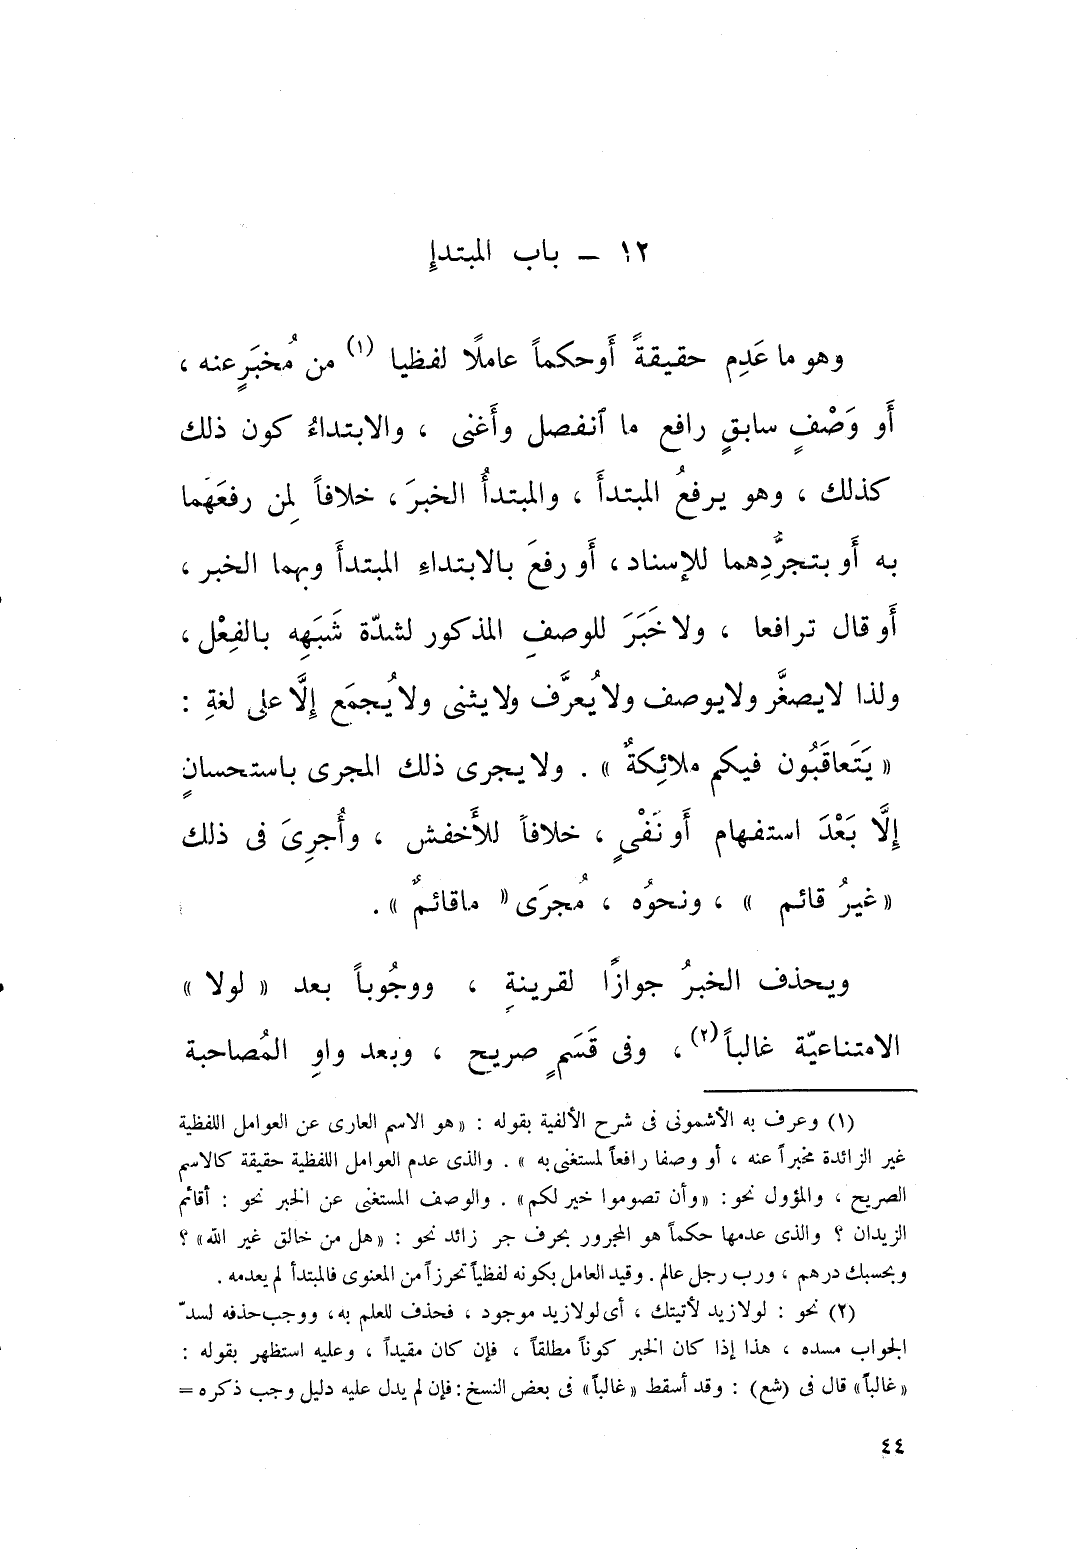 ١٢ – باب المبتدإ
وهو ما عَدِم حقيقةً أوحكماً عاملًا لفظيا (١) من مُخبَرٍ عنه ،
أَو وَصْفٍ سابقٍ رافع ما ٱنفصل وأَغنى ، والابتداءُ كون ذلك
كذلك ، وهو يرفعُ المبتدأَ ، والمبتدأُ الخبرَ ، خلافاً لِمن رفعَهما
به أَو بتجرُّدِهما للإسناد ، أَو رفعَ بالابتداءِ المبتدأَ وبهما الخبر ،
أَو قال ترافعا ، ولا خَبَرَ للوصفِ المذكور لشدّة شَبَهِه بالفِعْل ،
ولذا لايصغَّر ولايوصف ولايُعرَّف ولايثنى ولايُجمَع إلَّا على لغةِ :
« يَتَعاقَبُون فيكم ملائِكةٌ » . ولا يجرى ذلك المجرى باستحسانٍ
إلَّا بَعْدَ استفهام أَو نَفْىٍ ، خلافاً للأَخفش ، وأُجرِىَ فى ذلك
« غيرُ قائم » ، ونحوُه ، مُجرَى « ماقائمٌ » .
ويحذف الخبرُ جوازًا لقرينةٍ ، ووجُوباً بعد « لولا »
الامتناعيّة غالباً (٢) ، وفى قَسَمٍ صريح ، وبعد واوِ المُصاحبة
(١) وعرف به الأشمونى فى شرح الألفية بقوله : « هو الاسم العارى عن العوامل اللفظية
غير الزائدة مخبراً عنه ، أو وصفا رافعاً لمستغنى به » . والذى عدم العوامل اللفظية حقيقة كالاسم
الصريح ، والمؤول نحو : «وأن تصوموا خير لكم» . والوصف المستغنى عن الخبر نحو : أقائم
الزيدان ؟ والذى عدمها حكماً هو المجرور بحرف جر زائد نحو : «هل من خالق غير الله» ؟
وبحسبك درهم ، ورب رجل عالم . وقيد العامل بكونه لفظياً تحرزاً من المعنوى فالمبتدأ لم يعدمه .
(٢) نحو : لولا زيد لأتيتك ، أى لولا زيد موجود ، فحذف للعلم به ، ووجب حذفه لسدّ
الجواب مسده ، هذا إذا كان الخبر كوناً مطلقاً ، فإن كان مقيداً ، وعليه استظهر بقوله :
«غالباً» قال فى (شع) : وقد أسقط «غالباً» فى بعض النسخ : فإن لم يدل عليه دليل وجب ذكره =
٤٤